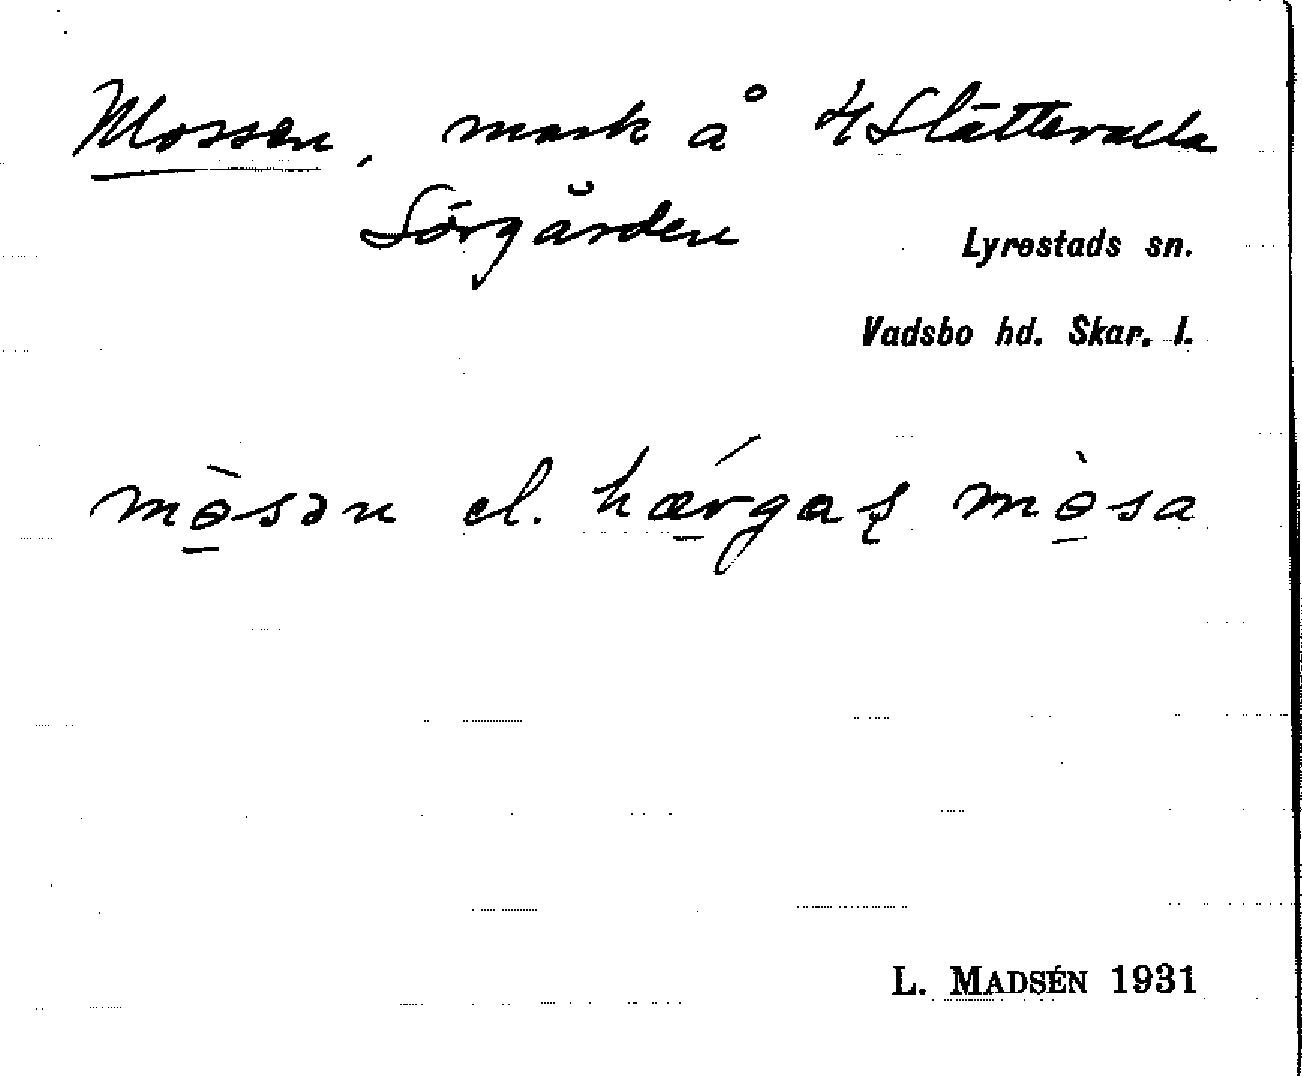 Mossen, mark å 4 Slättevalla
Sörgården
Lyrestads sn.
Vadsbo hd. Skar. l.
mòsən el. hærgas mòsa
L. MADSÉN 1931